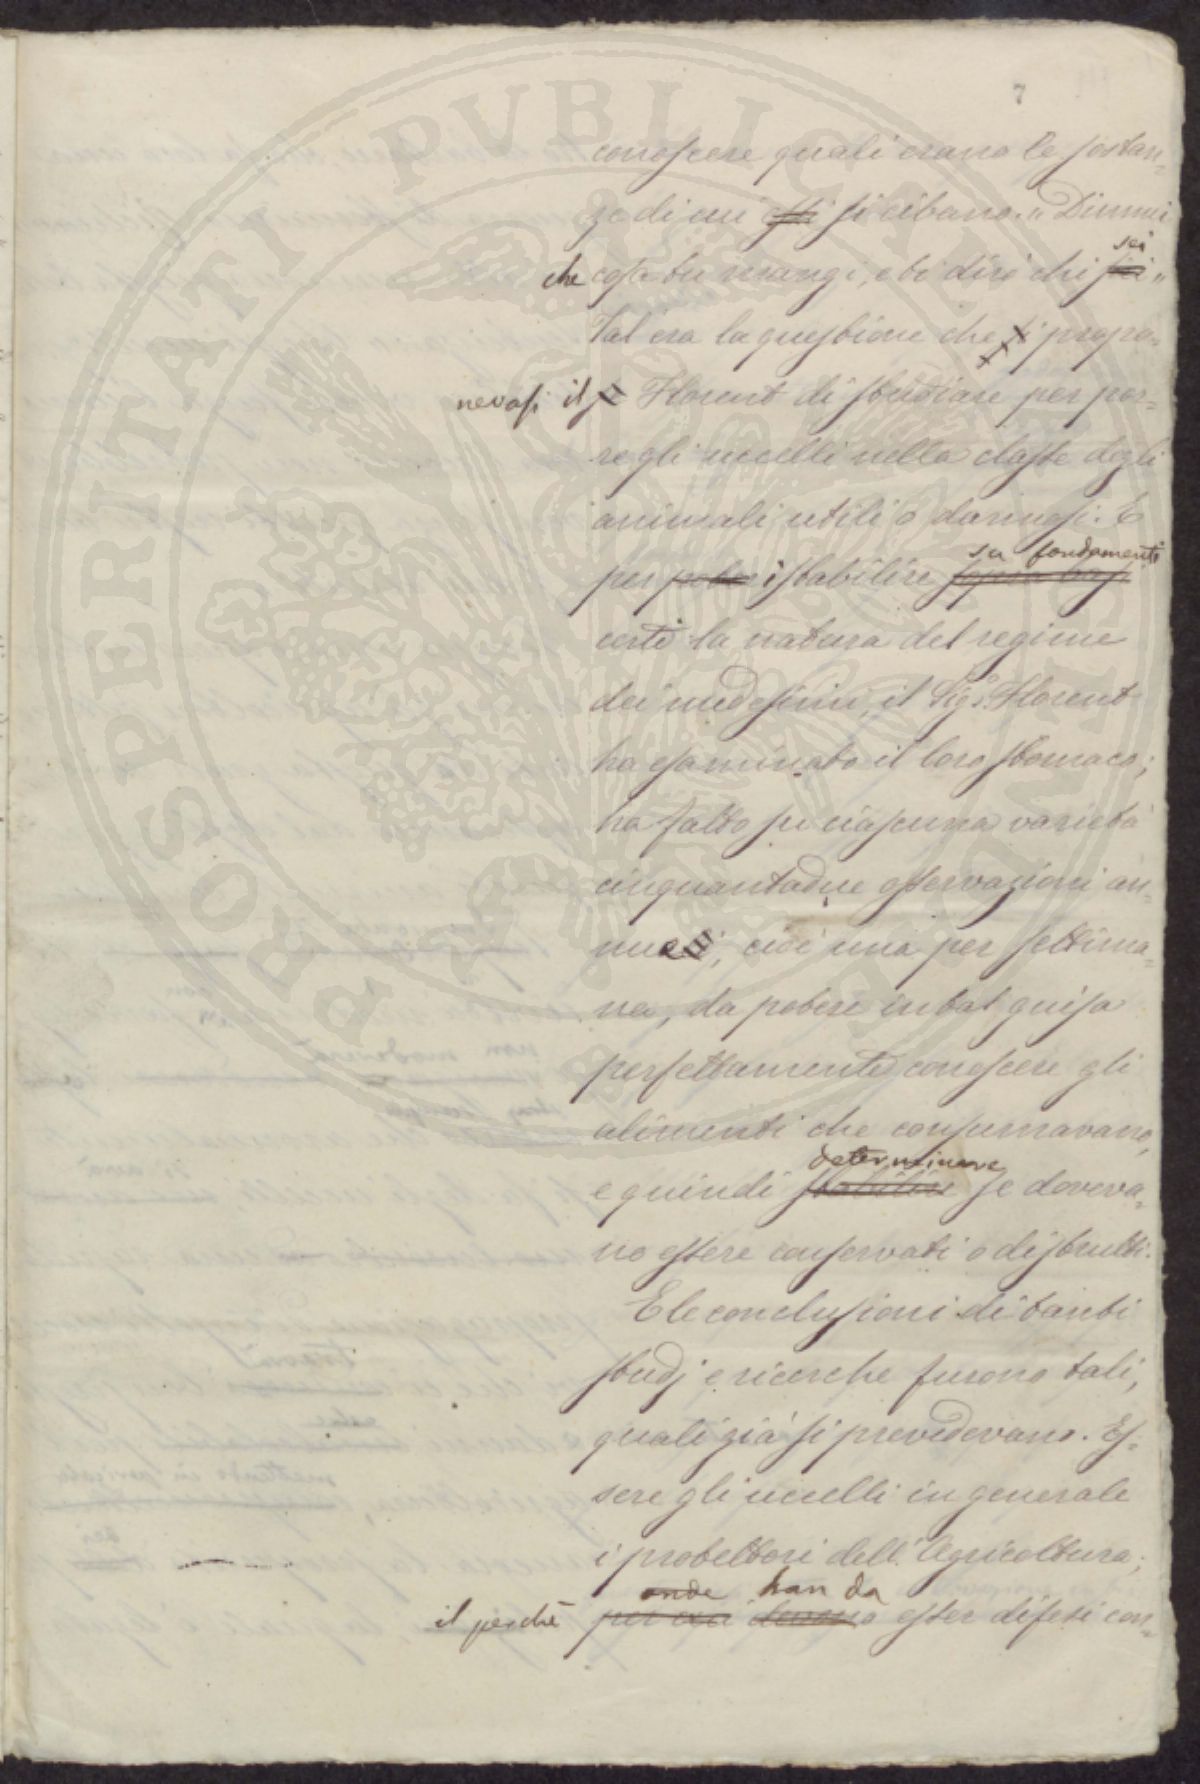 7
conoscere quali erano le sostan=
ze di cui essi si cibano. „ Dimmi
sei
che cosa tu mangi, e ti dirò chi sei „
Tal era la questione che si propo=
nevasi il Florent di studiare per por=
re gli uccelli nella classe degli
animali utili o dannosi. E
su fondamenti
per poter istabilire sopra basi
certi la natura del regime
dei medesimi, il Sig.r Florent
ha esaminato il loro stomaco;
ha fatto su ciascuna varietà
cinquantadue osservazioni an=
nue, cioè una per settima=
na, da potere in tal guisa
perfettamente conoscere gli
alimenti che consumavano,
determinare
e quindi stabilire se doveva=
no essere conservati o distrutti.
E le conclusioni di tanti
studj e ricerche furono tali,
quali già si prevedevano. Es=
sere gli uccelli in generale
i protettori dell'Agricoltura;
onde han da
il perchè per cui devono esser difesi con=
PROSPERITATI PUBLICAE